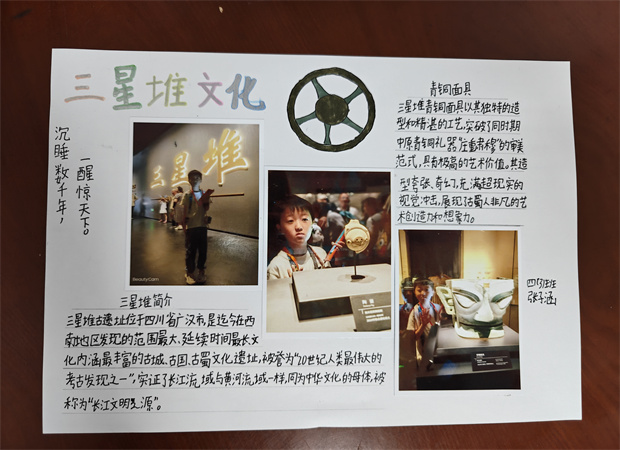 三星堆文化
沉睡数千年，
一醒惊天下。
三星堆
BeautyCam
三星堆简介
三星堆古遗址位于四川省广汉市,是迄今在西
南地区发现的范围最大、延续时间最长文
化内涵最丰富的古城、古国、古蜀文化遗址,被誉为“20世纪人类最伟大的
考古发现之一”,实证了长江流域与黄河流域一样,同为中华文化的母体,被
称为“长江文明之源”。
青铜面具
三星堆青铜面具以其独特的造
型和精湛的工艺,突破了同时期
中原青铜礼器“庄重肃穆”的审美
范式,具有极高的艺术价值。其造
型夸张、奇幻,充满超现实的
视觉冲击,展现古蜀人非凡的艺
术创造力和想象力。
张子涵